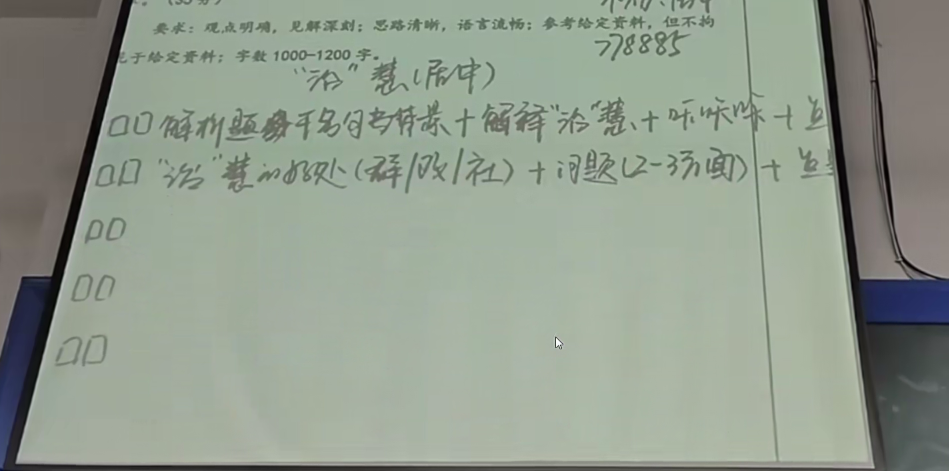 。（35分）
要求：观点明确，见解深刻；思路清晰，语言流畅；参考给定资料，但不拘
于给定资料；字数 1000-1200 字。
778885
"治"慧（居中）
解析题 名句与背景＋解释"治"慧＋咔咔咔＋
"治"慧的好处（群/政/社）＋问题（2-3方面）＋